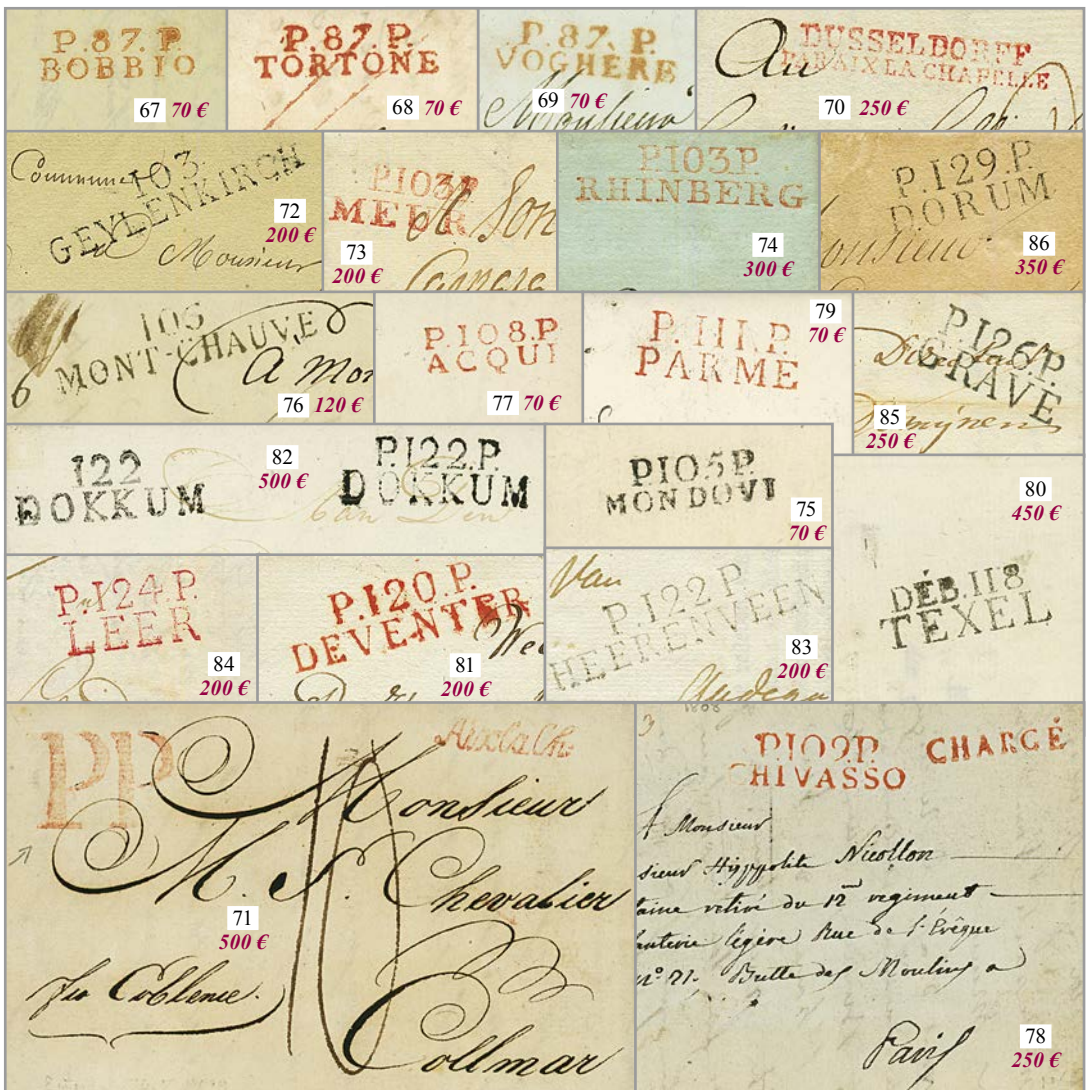 P.87.P.
BOBBIO
67 70 €
P.87.P.
TORTONE
68 70 €
P.87.P.
VOGHERE
Monsieur
69 70 €
DUSSELDORFF
PAR AIX LA CHAPELLE
Au
70 250 €
Commune
103
GEYLENKIRCH
Monsieur
72
200 €
P103P
MEUR
A Son
73
200 €
P103P.
RHINBERG
74
300 €
P.129.P.
DORUM
onsieur
86
350 €
103
MONT-CHAUVE
6
A Mon
76 120 €
P.108.P
ACQUI
77 70 €
P.111.P.
PARME
79
70 €
P.126.P.
GRAVE
85
250 €
122
DOKKUM
82
500 €
P.122.P.
DOKKUM
P105P.
MONDOVI
75
70 €
80
450 €
DÉB.118
TEXEL
P.124.P.
LEER
84
200 €
P.120.P.
DEVENTER
81
200 €
Van
P.122.P.
HEERENVEEN
83
200 €
PP
Aix la Ch.
Monsieur
M. S. Chevalier
10
71
500 €
Coblence.
Collmar
1808
3
P.109.P. CHARGÉ
CHIVASSO
A Monsieur
sieur Hyppolite Nicollon
taine retiré du 12 regiment
anterie légère Rue de l'Evêque
n° 21. Butte des Moulins a
Paris
78
250 €